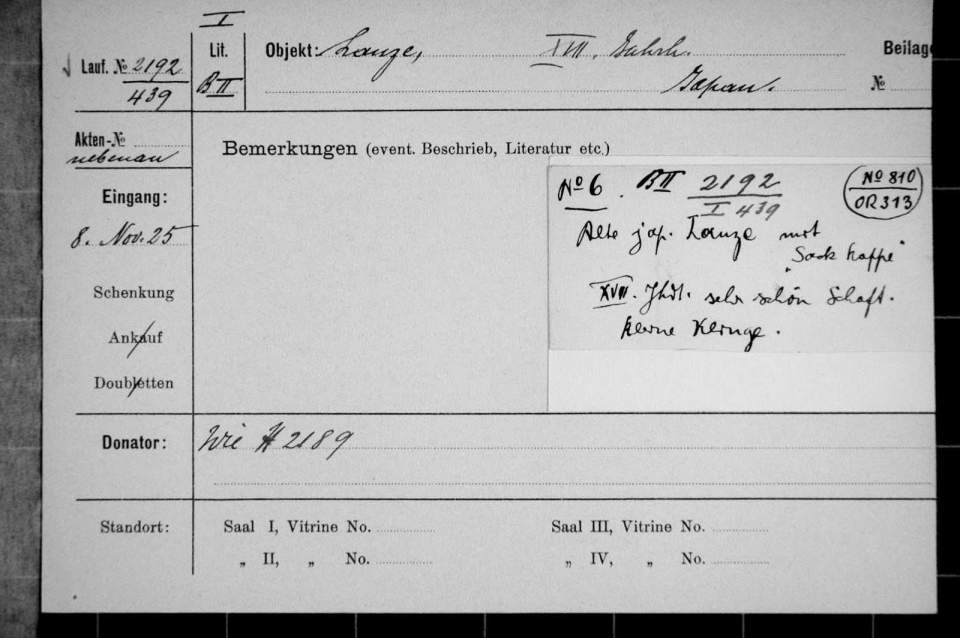 I
Lauf. № 2192
439
Lit.
B II
Objekt: Lanze, XVII. Jahrh.
Japan.
Beilage
№
Akten-№
nebenan
Bemerkungen (event. Beschrieb, Literatur etc.)
Eingang:
8. Nov. 25
Schenkung
Ankauf
Doubletten
Nº 6. B II 2192
I 439
Nº 810
OR 313
Alte jap. Lanze mit
"Sack Kappe"
XVII. Jhdt. sehr schön Schaft.
keine
Donator: Wie # 2189
Standort:
Saal I, Vitrine No.
„ II, „ No.
Saal III, Vitrine No.
„ IV, „ No.